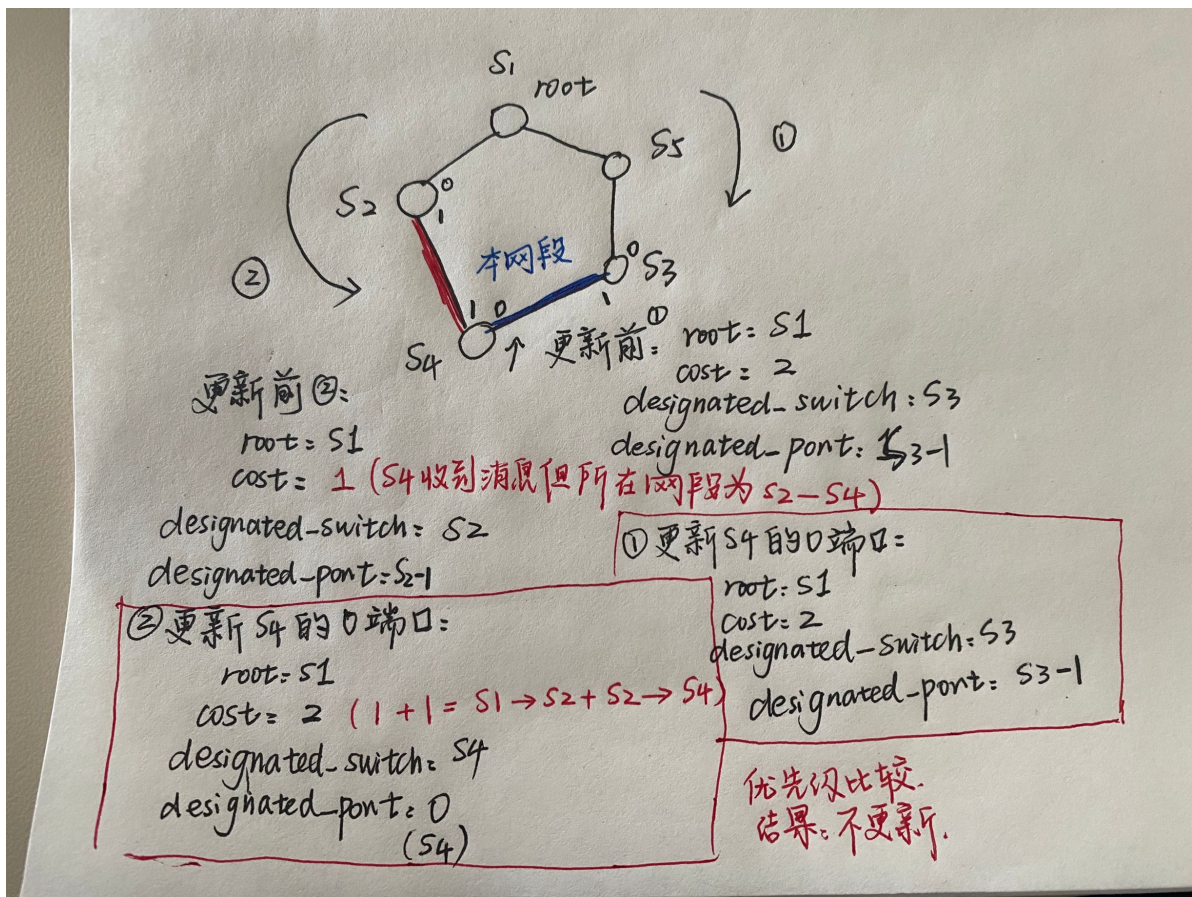 S1
root
S5
①
S2
0
1
②
本网段
0
S3
1
1 0
S4
↑ 更新前①: root: S1
cost: 2
designated_switch: S3
designated_port: S3-1
更新前②:
root: S1
cost: 1 (S4收到消息但所在网段为S2-S4)
designated_switch: S2
designated_port: S2-1
①更新S4的0端口:
root: S1
cost: 2
designated_switch: S3
designated_port: S3-1
②更新S4的0端口:
root: S1
cost: 2 (1+1= S1→S2+S2→S4)
designated_switch: S4
designated_port: 0
(S4)
优先级比较.
结果: 不更新.